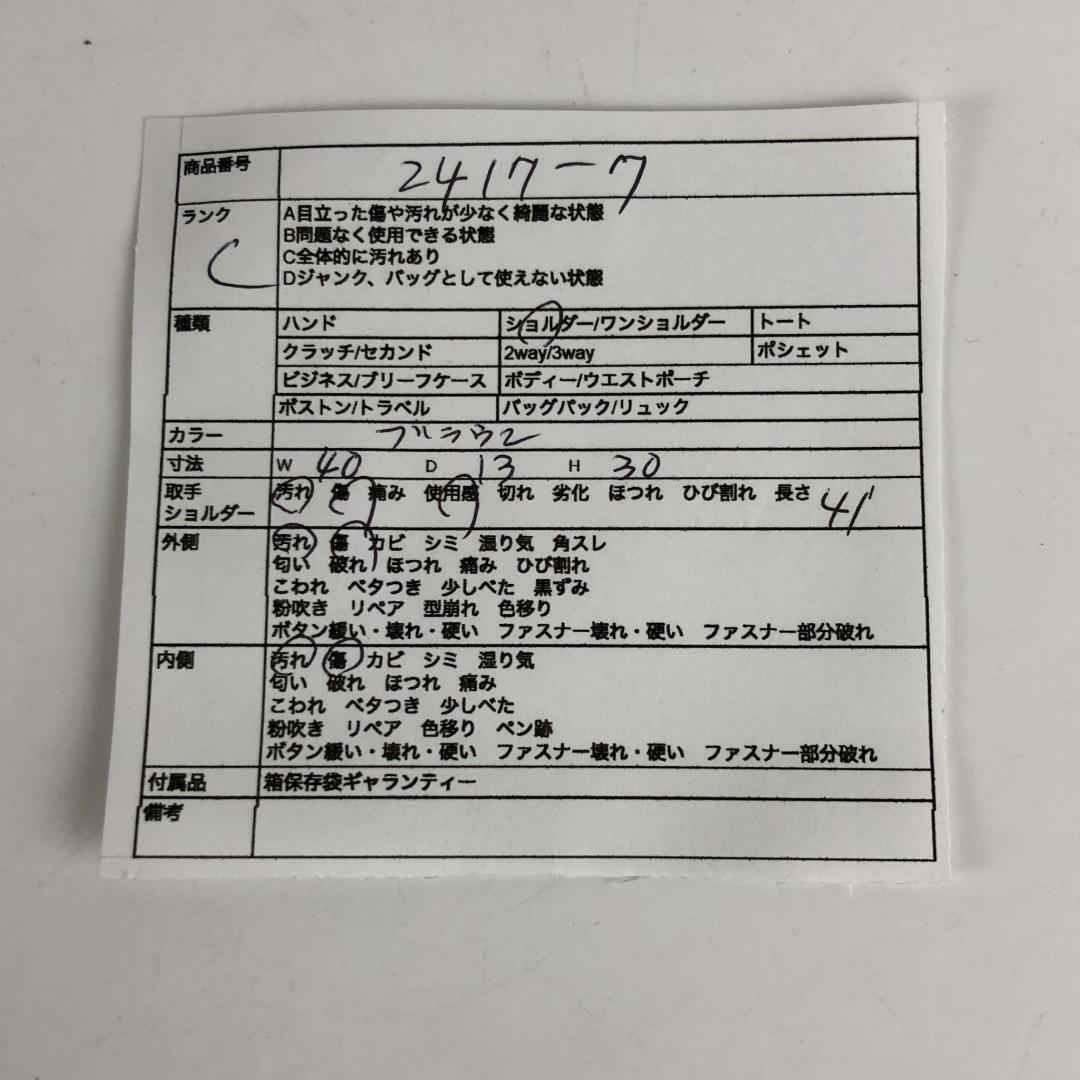 商品番号 2417-7
ランク C
A目立った傷や汚れが少なく綺麗な状態
B問題なく使用できる状態
C全体的に汚れあり
Dジャンク、バッグとして使えない状態
種類 ハンド ショルダー/ワンショルダー トート
クラッチ/セカンド 2way/3way ポシェット
ビジネス/ブリーフケース ボディー/ウエストポーチ
ボストン/トラベル バッグパック/リュック
カラー ブラウン
寸法 W 40 D 13 H 30
取手 汚れ 傷 痛み 使用感 切れ 劣化 ほつれ ひび割れ 長さ 41
ショルダー
外側 汚れ 傷 カビ シミ 湿り気 角スレ
匂い 破れ ほつれ 痛み ひび割れ
こわれ ベタつき 少しべた 黒ずみ
粉吹き リペア 型崩れ 色移り
ボタン緩い・壊れ・硬い ファスナー壊れ・硬い ファスナー部分破れ
内側 汚れ 傷 カビ シミ 湿り気
匂い 破れ ほつれ 痛み
こわれ ベタつき 少しべた
粉吹き リペア 色移り ペン跡
ボタン緩い・壊れ・硬い ファスナー壊れ・硬い ファスナー部分破れ
付属品 箱保存袋ギャランティー
備考